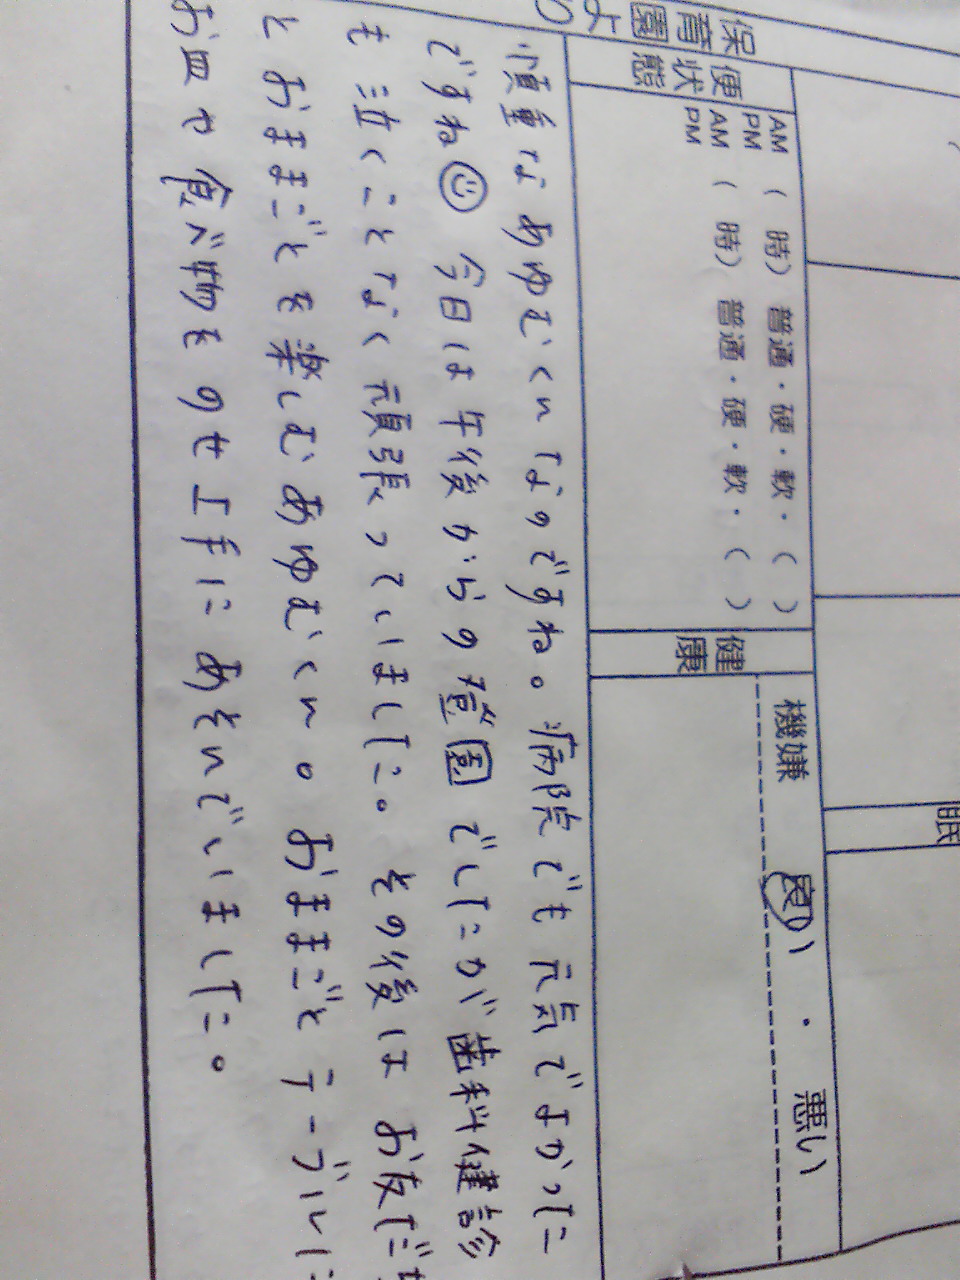 保育園よ
便状態
AM ( 時) 普通・硬・軟・( )
PM
AM ( 時) 普通・硬・軟・( )
PM
健康
機嫌 良い ・ 悪い
眠
慎重なあゆむくんなのですね。病院でも元気でよかった
ですね☺ 今日は午後からの登園でしたが歯科健診
も泣くことなく頑張っていました。その後はお友だち
とおままごとを楽しむあゆむくん。おままごとテーブルに
お皿や食べ物をのせ上手にあそんでいました。